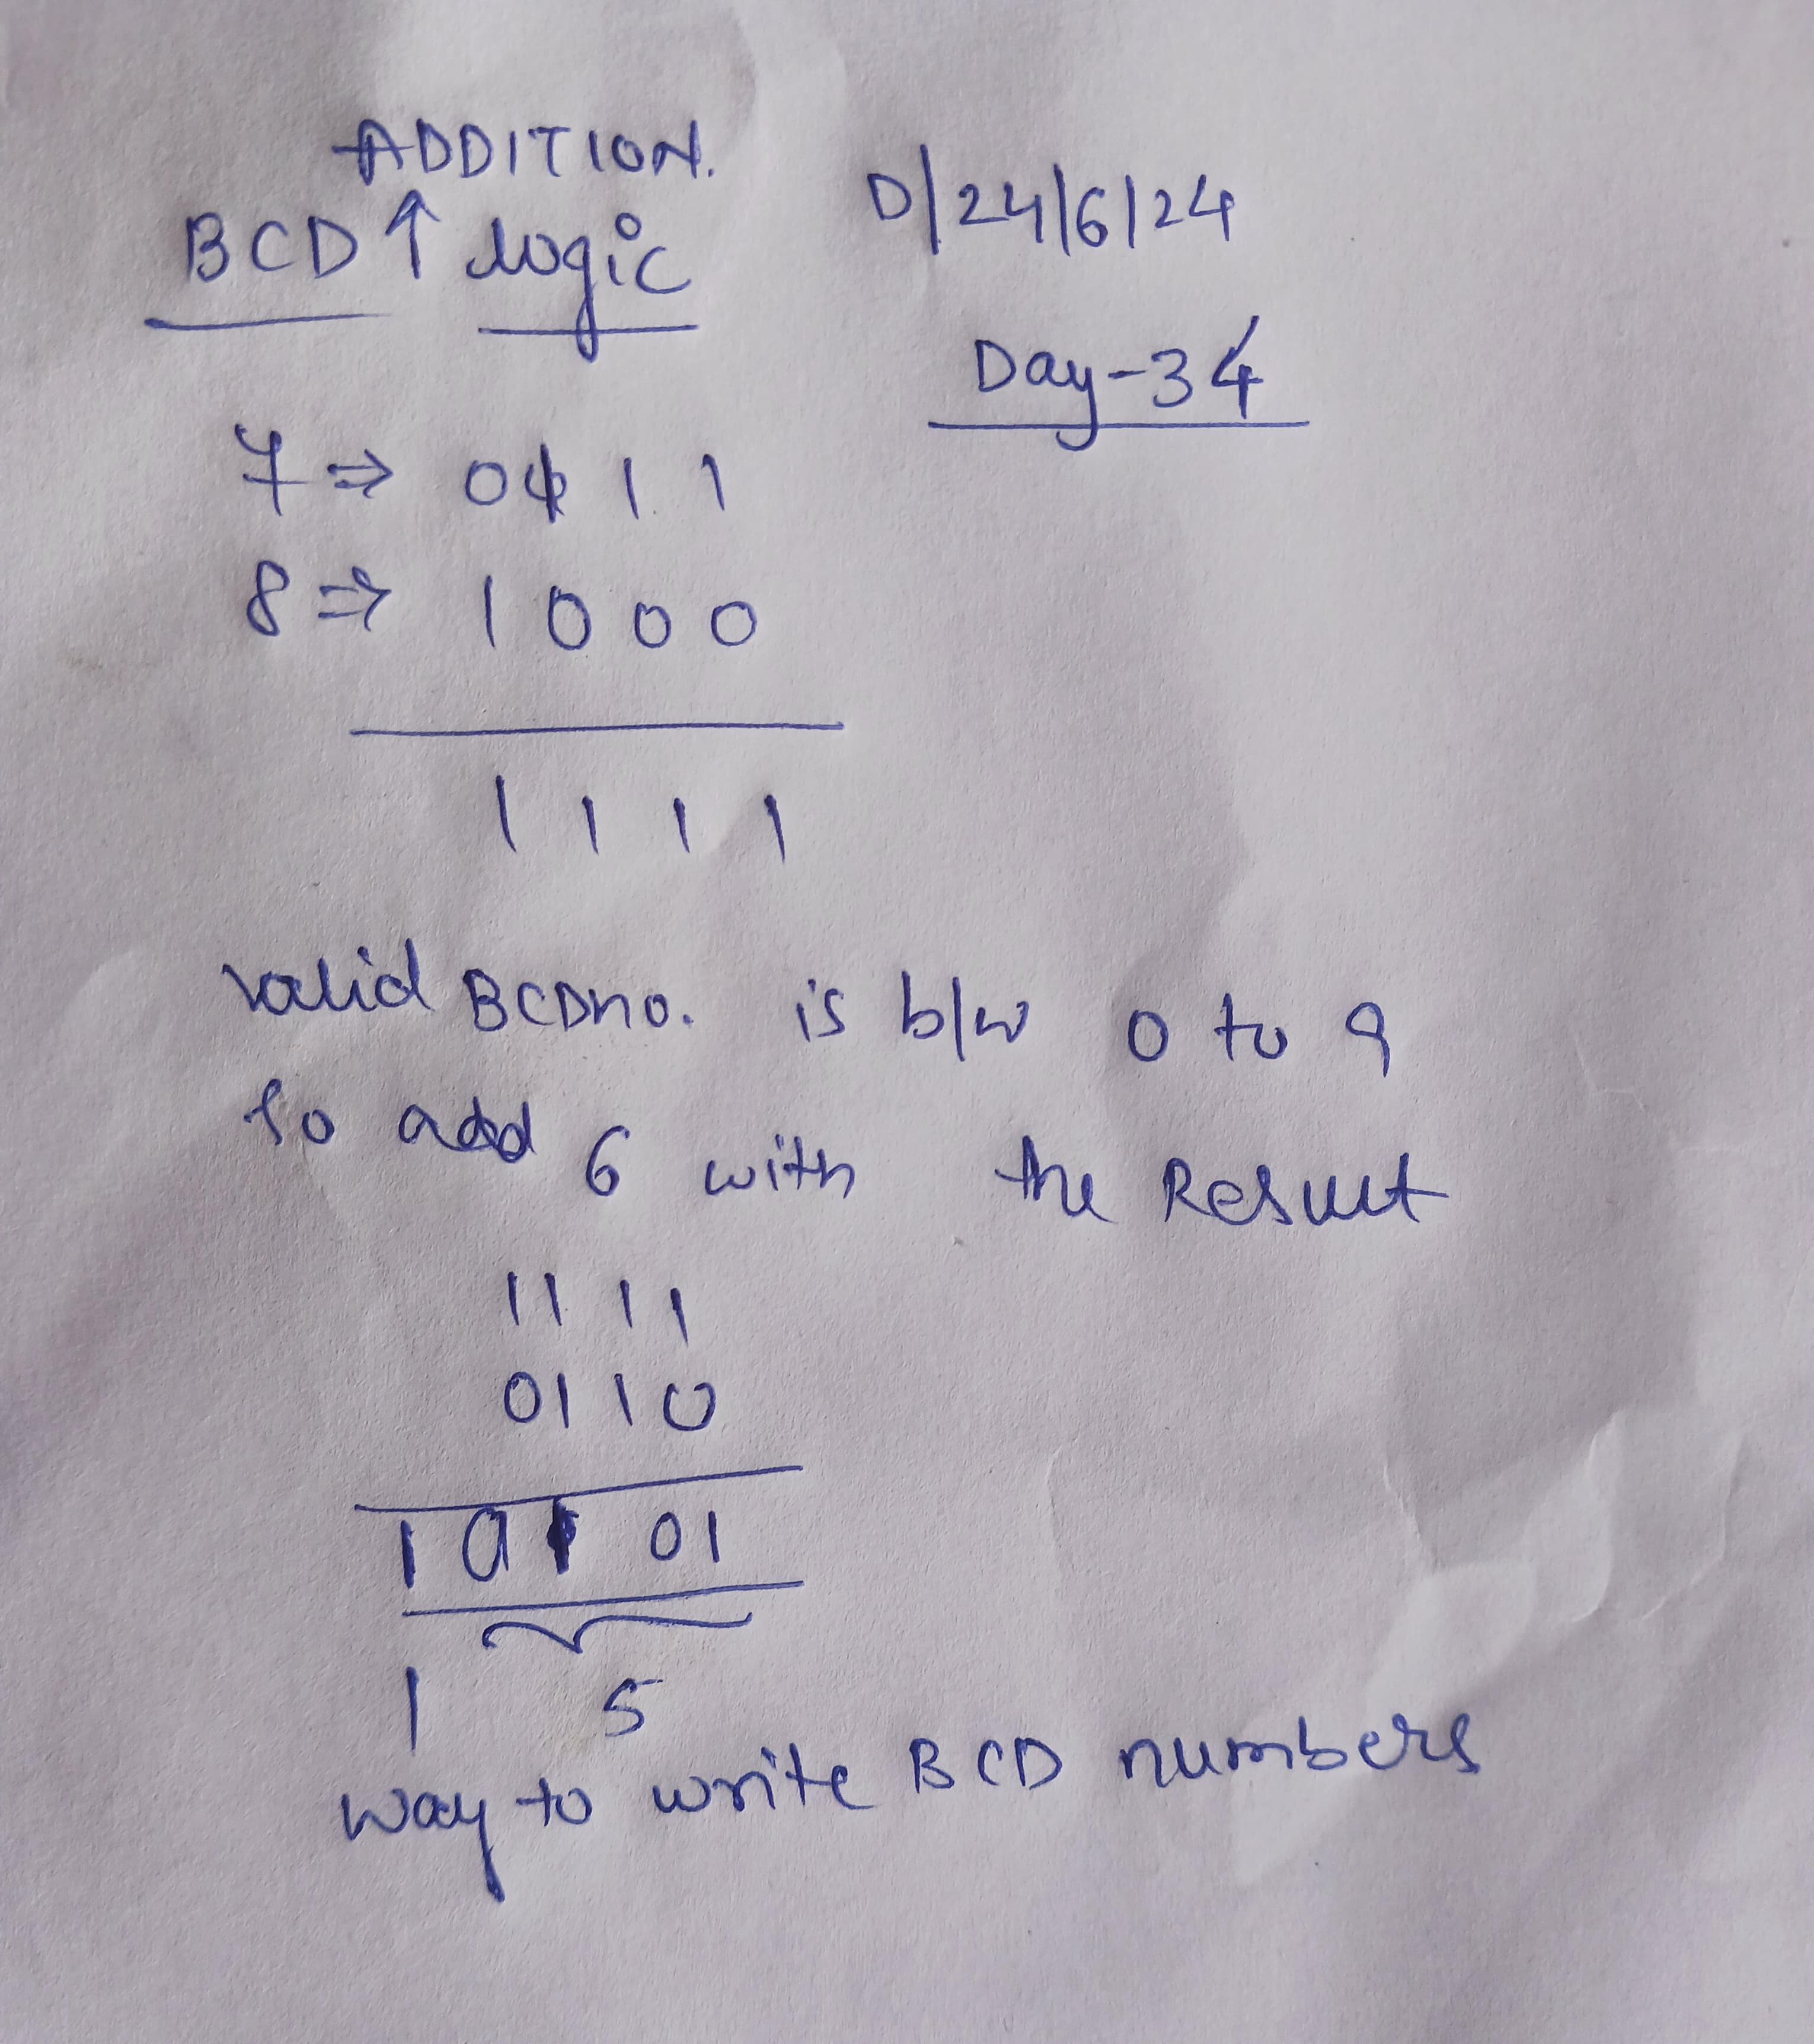 ADDITION.
BCD ↑ logic
D/24/6/24
Day-34
7 ⇒ 0111
8 ⇒ 1000
1111
Valid BCDno. is b/w 0 to 9
So add 6 with the Result
1111
0110
10101
1 5
way to write BCD numbers